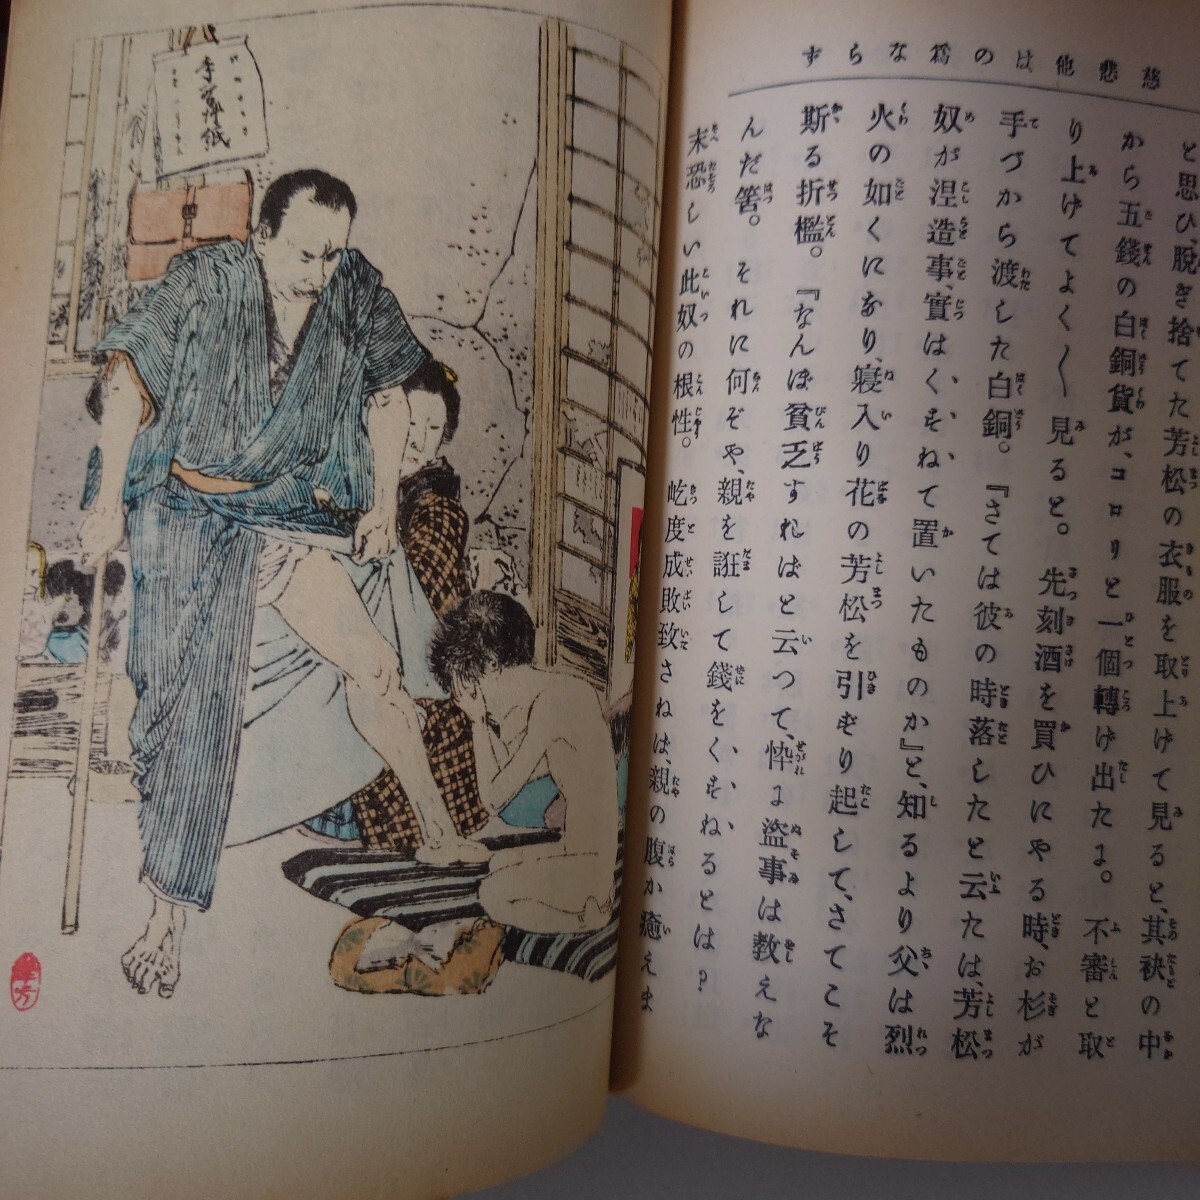 慈悲他はの爲ならず
と思ひ脱ぎ捨てた芳松の衣服を取上げて見ると、其袂の中
から五錢の白銅貨が、コロリと一個轉げ出たよ。不審と取
り上げてよく〱見ると。先刻酒を買ひにやる時、お杉が
手づから渡した白銅。『さては彼の時落したと云たは、芳松
奴が涅造事、實はくすねて置いたものか』と、知るより父は烈
火の如くになり、寢入り花の芳松を引ずり起して、さてこそ
斯る折檻。『なんぼ貧乏すればと云つて、悴に盜事は教えな
んだ筈。それに何ぞや、親を誑して錢をくすねるとは？
末恐しい此奴の根性。屹度成敗致さねば、親の腹か癒えま